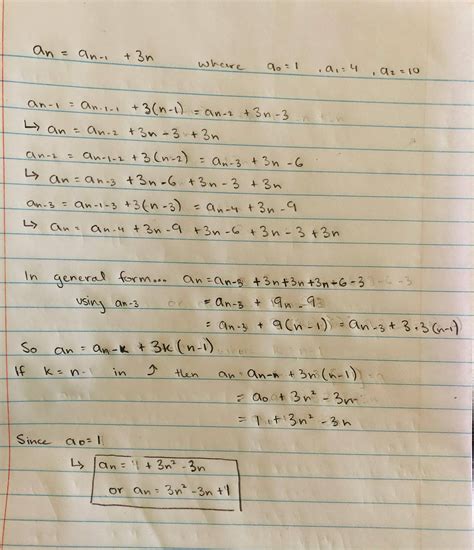 an = an-1 + 3n where a0=1 , a1=4 , a2=10
an-1 = an-1-1 + 3(n-1) = an-2 + 3n-3
↳ an = an-2 + 3n-3 +3n
an-2 = an-1-2 + 3(n-2) = an-3 + 3n-6
↳ an = an-3 +3n-6 +3n-3 +3n
an-3 = an-1-3 +3(n-3) = an-4 +3n-9
↳ an = an-4 +3n-9 +3n-6 +3n-3 +3n
In general form... an=an-3 +3n+3n+3n+6-3
using an-3 = an-3 + 9n-9
= an-3 + 9(n-1) = an-3 +3·3(n-1)
So an = an-k + 3k(n-1)
If k=n-1 in ↑ then an = an-n +3n(n-1)
= a0 +3n² -3n
= 1 +3n² -3n
Since a0=1
↳ an = 1 +3n² -3n
or an = 3n² -3n+1